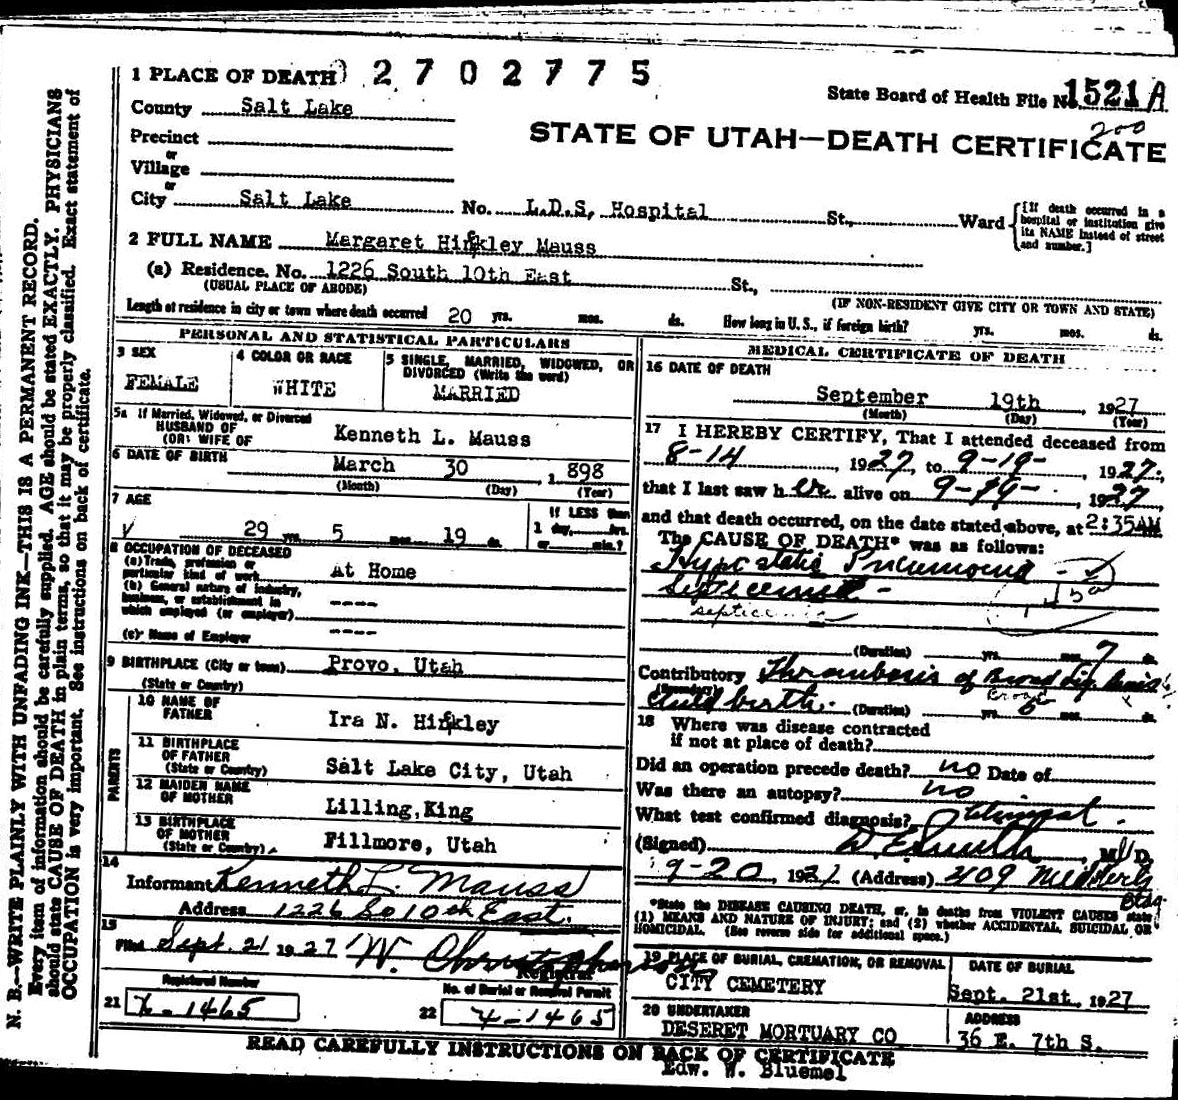 1 PLACE OF DEATH 2702775
State Board of Health File No. 1521 A
200
County Salt Lake
STATE OF UTAH—DEATH CERTIFICATE
Precinct
or
Village
or
City Salt Lake No. L.D.S, Hospital St., Ward
[If death occurred in a hospital or institution give its NAME instead of street and number.]
2 FULL NAME Margaret Hinckley Mauss
(a) Residence. No. 1226 South 10th East St.,
(USUAL PLACE OF ABODE) (IF NON-RESIDENT GIVE CITY OR TOWN AND STATE)
Length of residence in city or town where death occurred 20 yrs. mos. ds. How long in U. S., if foreign birth? yrs. mos. ds.
PERSONAL AND STATISTICAL PARTICULARS
3 SEX
FEMALE
4 COLOR OR RACE
WHITE
5 SINGLE, MARRIED, WIDOWED, OR
DIVORCED (Write the word)
MARRIED
5a If Married, Widowed, or Divorced
HUSBAND OF
(OR) WIFE OF Kenneth L. Mauss
6 DATE OF BIRTH March 30, 1898
(Month) (Day) (Year)
7 AGE
29 yrs. 5 mos. 19 ds.
If LESS than
1 day, hrs.
or min.?
8 OCCUPATION OF DECEASED
(a) Trade, profession or
particular kind of work At Home
(b) General nature of industry,
business, or establishment in
which employed (or employer) ----
(c) Name of Employer ----
9 BIRTHPLACE (City or town) Provo, Utah
(State or Country)
PARENTS
10 NAME OF
FATHER Ira N. Hinckley
11 BIRTHPLACE
OF FATHER
(State or Country) Salt Lake City, Utah
12 MAIDEN NAME
OF MOTHER Lilling,King
13 BIRTHPLACE
OF MOTHER
(State or Country) Fillmore, Utah
14
Informant Kenneth L. Mauss
Address 1226 So 10th East.
15
Filed Sept. 21 1927 W. Christopherson
Registrar
Registered Number
21 X-1465
No. of Burial or Removal Permit
22 X-1465
MEDICAL CERTIFICATE OF DEATH
16 DATE OF DEATH
September 19th, 1927
(Month) (Day) (Year)
17 I HEREBY CERTIFY, That I attended deceased from
8-14, 1927, to 9-19-, 1927,
that I last saw her alive on 9-19-, 1927
and that death occurred, on the date stated above, at 2:35AM
The CAUSE OF DEATH* was as follows:
Hypostatic Pneumonia -
Septicemia -
septicemia
(Duration) yrs. mos. 7 ds.
Contributory Thrombosis of Broad Lig.
(Secondary) Broad
Child birth. (Duration) yrs. mos. ds.
18 Where was disease contracted
if not at place of death?
Did an operation precede death? no Date of
Was there an autopsy? no
What test confirmed diagnosis? Clinical.
(Signed) D. E. Smith, M. D.
9-20, 1927 (Address) 409 Bldg
*State the DISEASE CAUSING DEATH, or, in deaths from VIOLENT CAUSES state
(1) MEANS AND NATURE OF INJURY; and (2) whether ACCIDENTAL, SUICIDAL OR
HOMICIDAL. (See reverse side for additional space.)
19 PLACE OF BURIAL, CREMATION, OR REMOVAL
CITY CEMETERY
DATE OF BURIAL
Sept. 21st, 1927
20 UNDERTAKER
DESERET MORTUARY CO
Edw. W. Bluemel
ADDRESS
36 E. 7th S.
READ CAREFULLY INSTRUCTIONS ON BACK OF CERTIFICATE
N. B.—WRITE PLAINLY WITH UNFADING INK—THIS IS A PERMANENT RECORD.
Every item of information should be carefully supplied. AGE should be stated EXACTLY. PHYSICIANS
should state CAUSE OF DEATH in plain terms, so that it may be properly classified. Exact statement of
OCCUPATION is very important. See instructions on back of certificate.